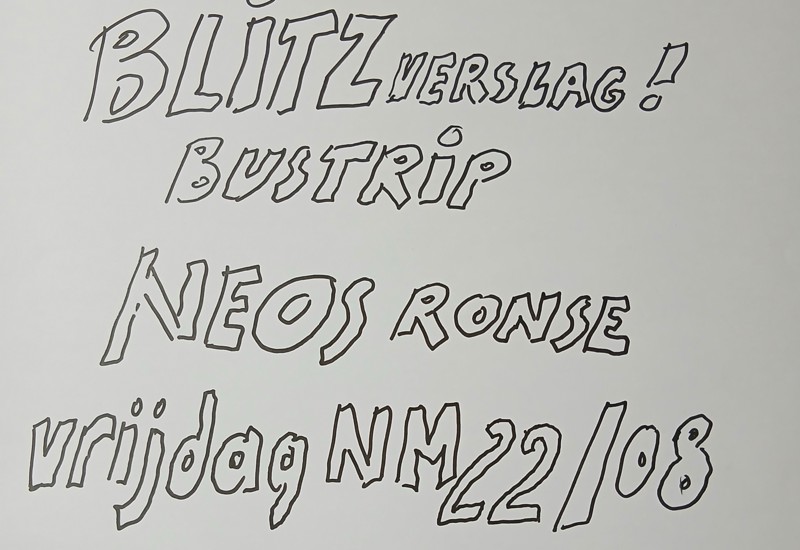 BLiTZ VERSLAG!
BUSTRiP
NEOS RONSE
vrijdag NM 22/08